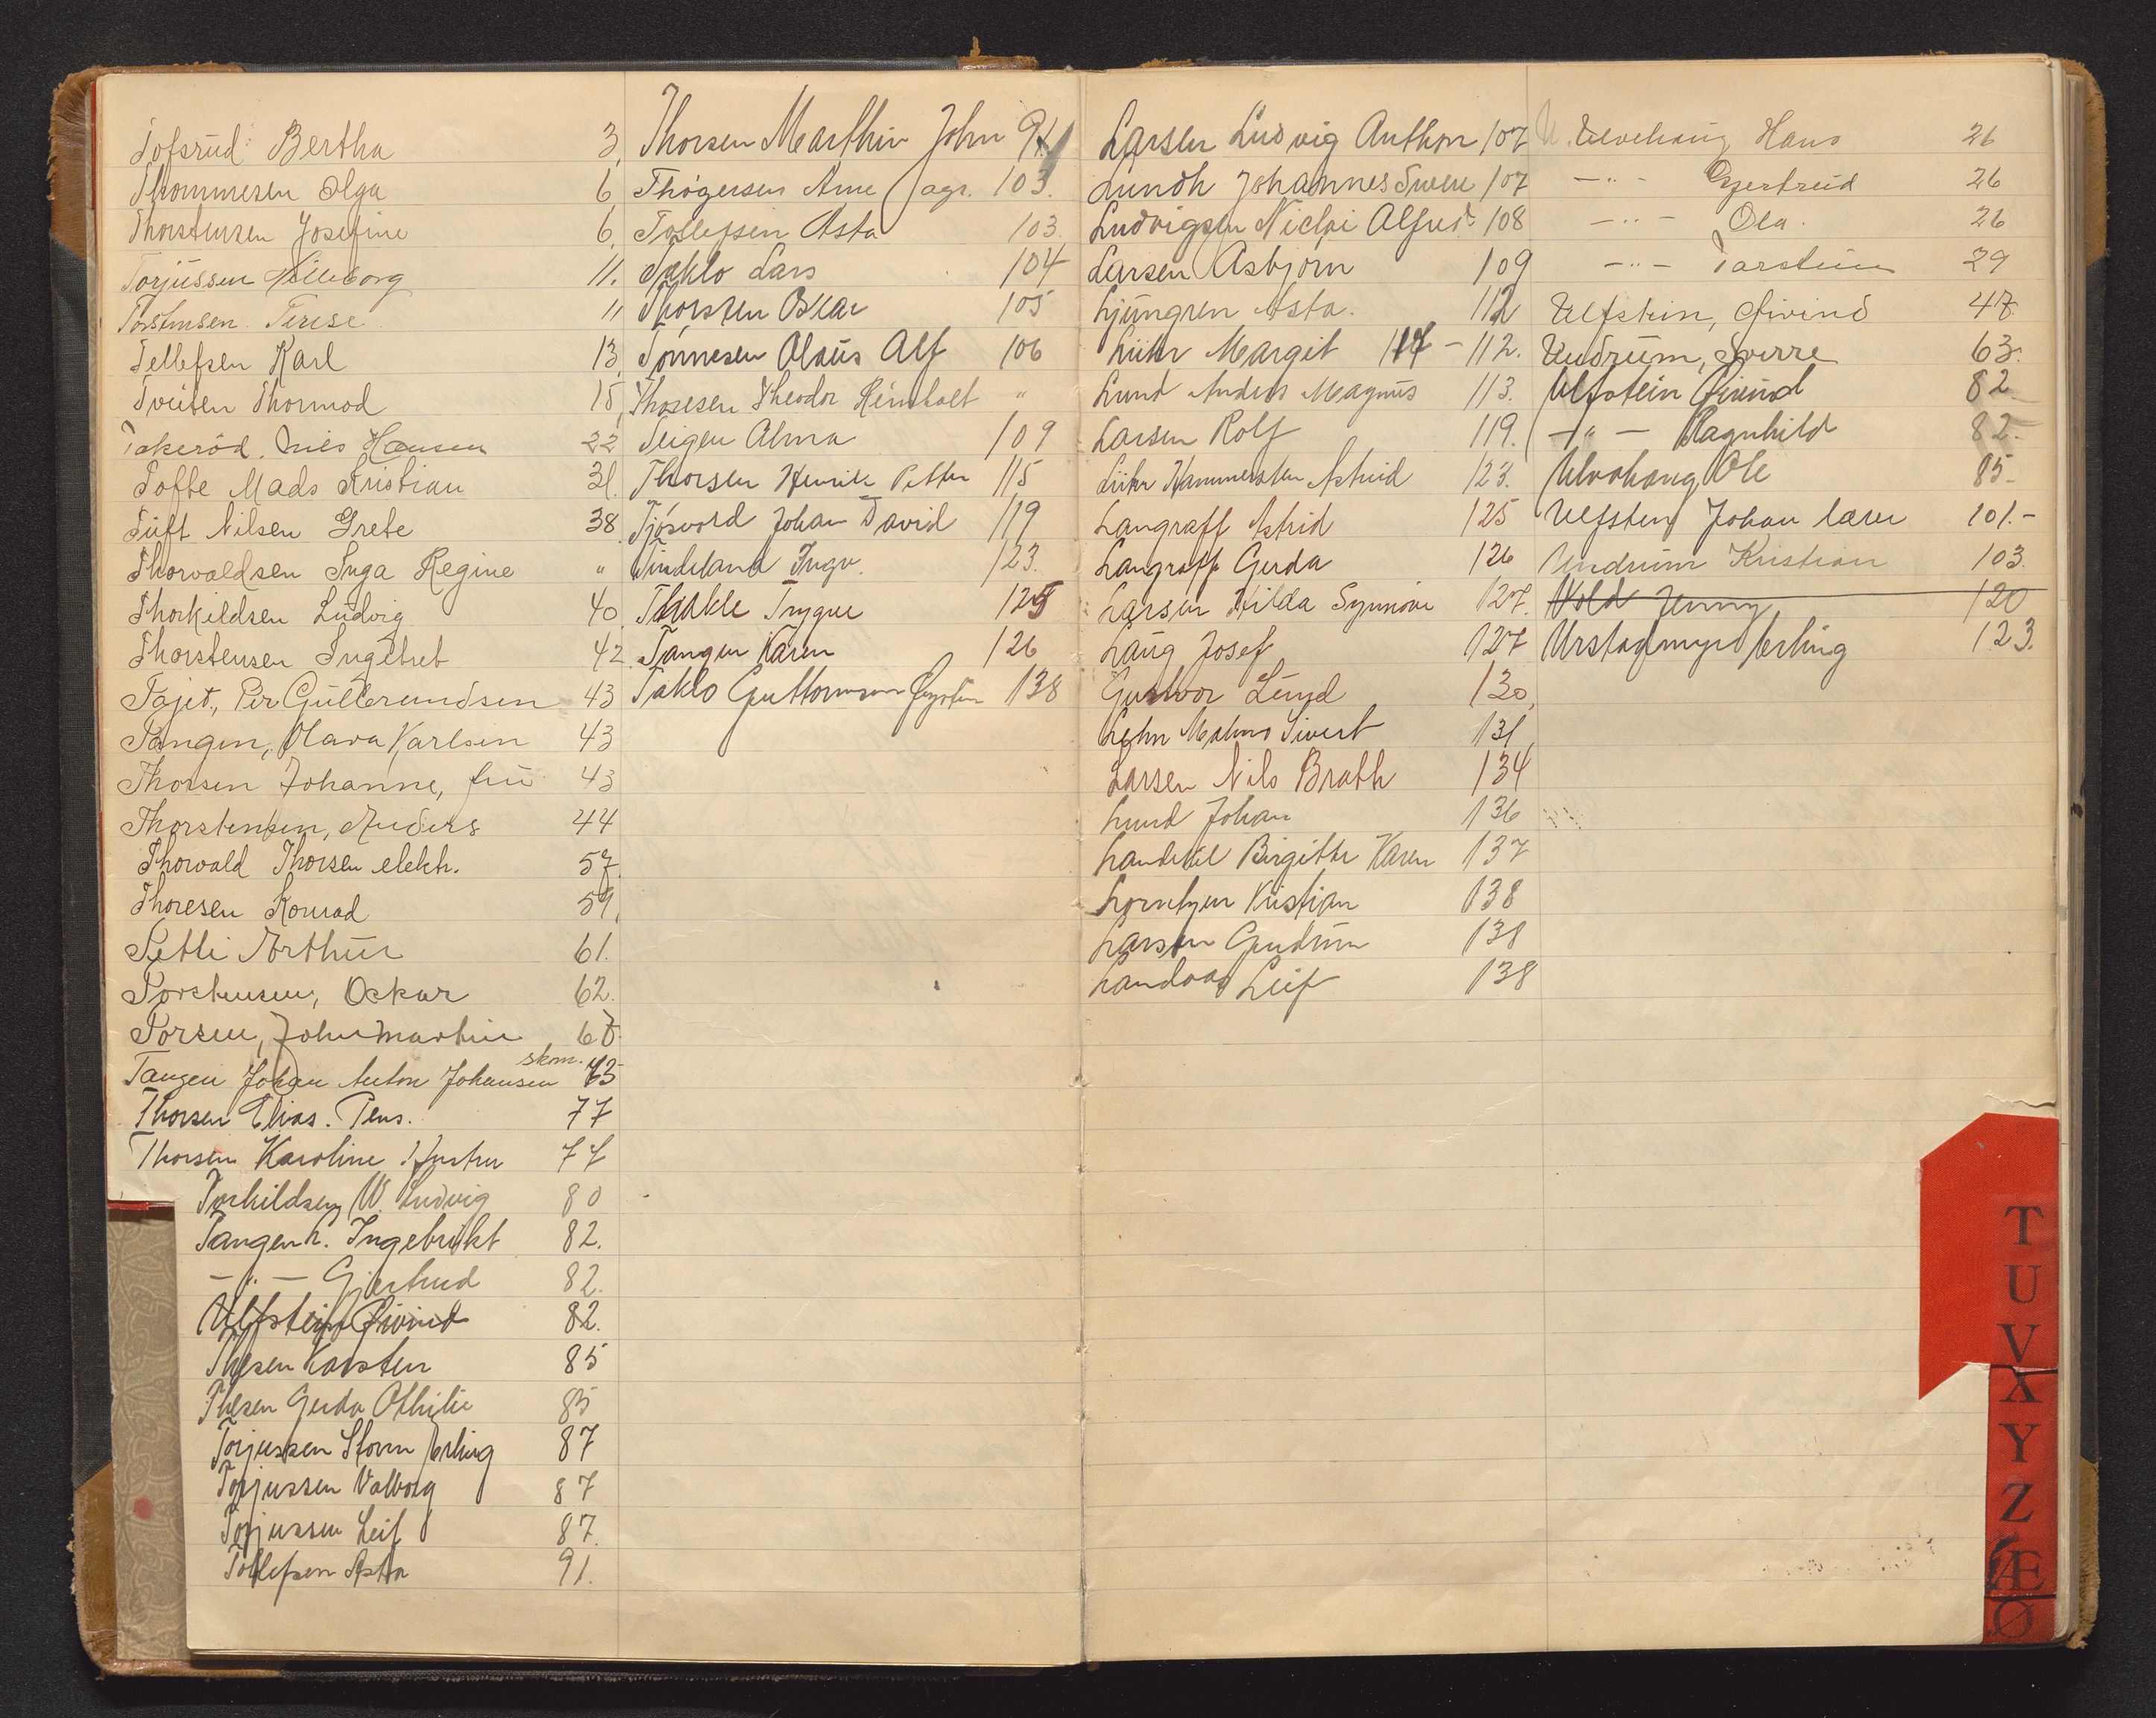 Tofsrud Bertha 3
Thommesen Olga 6
Thorstensen Josefine 6
Torjussen Valborg 11.
Torstensen Terese 11
Tellefsen Karl 13
Tveiten Thormod 15
Takeröd. Nils Hansen 22
Tofte Mads Kristian 31.
Tuft Nilsen Grete 38
Thorvaldsen Inga Regine "
Thorkildsen Ludvig 40
Thorstensen Ingebret 42
Tajet, Per Gulbrandsen 43
Tangen, Olava Karlsen 43
Thorsen Johanne, fru 43
Thorstensen, Anders 44
Thorvald Thorsen elektr. 57
Thoresen Konrad 59
Tetli Arthur 61.
Torstensen, Oskar 62.
Torsen, John Martin 67.
skom.
Tangen Johan Anton Johansen 73
Thorsen Elias. Pens. 77
Thorsen Karoline Hustru 77
Torkildsen W. Ludvig 80
Tangen K. Ingebrikt 82.
— " — Gjertrud 82.
Ulfstein Øivind 82.
Thesen Karsten 85
Thesen Gerda Othilie 85
Torjussen Storm Erling 87
Torjussen Valborg 87
Torjussen Leif 87.
Tollefsen Asta 91.
Thorsen Marthin John 91
Thögersen Arne agr. 103.
Tollefsen Asta 103.
Taklo Lars 104
Thorsten Oskar 105
Tönnesen Olaus Alf 106
Thoresen Theodor Reinholt "
Teigen Alma 109
Thorsen Henrik Petter 115
Tjösvold Johan David 119
Tindeland Ingv. 123.
Thakle Trygve 125
Tangen Karen 126
Taklo Guttormson Øystein 138
Larsen Ludvig Anthon 107
Lundh Johannes Swen 107
Ludvigsen Niclai Alfred 108
Larsen Asbjørn 109
Ljungren Asta. 112
Lühr Margit 117 - 112.
Lund Anders Magnus 113.
Larsen Rolf 119.
Lühr Hammersten Astrid 123.
Langraff Astrid 125
Langraff Gerda 126
Larsen Hilda Synnöve 127.
Laug Josef 127
Gunvor Lund 130
Lehn Malmo Sivert 131
Larsen Nils Brath 134
Lund Johan 136
Landvik Birgitte Karen 137
Lorentzen Kristian 138
Larsen Gudrun 138
Landaas Leif 138
U. Ulvehaug Hans 26
— " — Gjertrud 26
— " — Ola. 26
— " — Torstein 29
Ulfstein, Øivind 47.
Undrum, Sverre 63.
Ulfstein Øivind 82
— " — Ragnhild 82.
Ulvehaug Ole 85
Ulfsten Johan lærer 101.-
Undrum Kristian 103.
Wold Jenny 120
Urstadmyrd Erling 123.
T
U
V
X
Y
Z
Æ
Ø